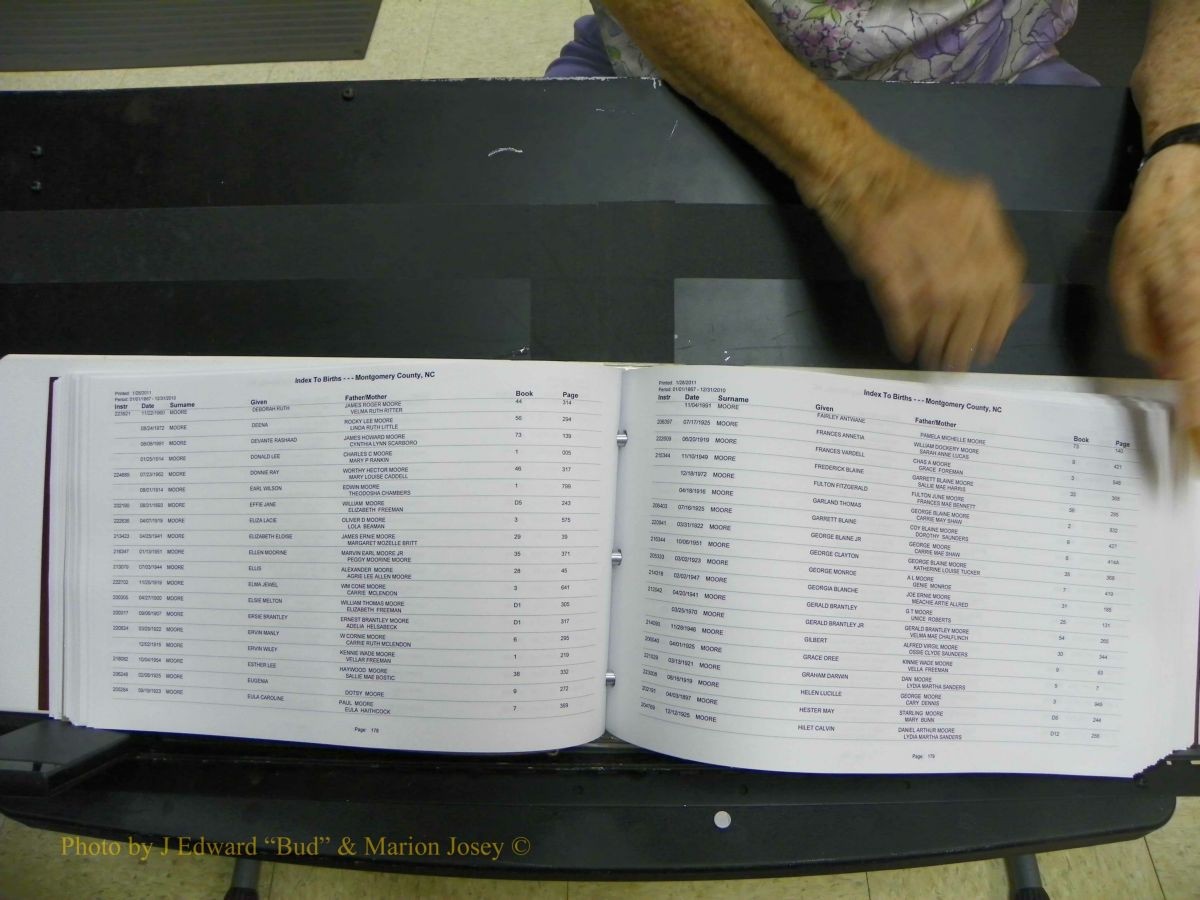 Index To Births - - - Montgomery County, NC
Printed: 1/28/2011
Period: 01/01/1867 - 12/31/2010
Instr Date Surname Given Father/Mother Book Page
MOORE DEBORAH RUTH JAMES ROGER MOORE 44 314
VELMA RUTH RITTER
MOORE DEENA ROCKY LEE MOORE 56 294
LINDA RUTH LITTLE
MOORE DEVANTE RASHAAD JAMES HOWARD MOORE 73 139
CYNTHIA LYNN SCARBORO
01/25/1914 MOORE DONALD LEE CHARLES C MOORE 1 005
MARY P RANKIN
07/23/1962 MOORE DONNIE RAY WORTHY HECTOR MOORE 46 317
MARY LOUISE CADDELL
MOORE EARL WILSON EDWIN MOORE 1 799
THEODOSHA CHAMBERS
MOORE EFFIE JANE WILLIAM MOORE D5 243
ELIZABETH FREEMAN
222636 04/07/1919 MOORE ELIZA LACIE OLIVER D MOORE 3 575
LOLA BEAMAN
213423 04/23/1941 MOORE ELIZABETH ELOISE JAMES ERNIE MOORE 29 39
MARGARET MOZELLE BRITT
216347 01/13/1951 MOORE ELLEN MOORINE MARVIN EARL MOORE JR 35 371
PEGGY MOORINE MOORE
213070 07/03/1944 MOORE ELLIS ALEXANDER MOORE 28 45
AGRIE LEE ALLEN MOORE
222702 11/25/1919 MOORE ELMA JEWEL WM CONE MOORE 3 641
CARRIE MCLENDON
04/27/1900 MOORE ELSIE MELTON WILLIAM THOMAS MOORE D1 305
ELIZABETH FREEMAN
200317 09/06/1907 MOORE ERSIE BRANTLEY ERNEST BRANTLEY MOORE D1 317
ADELIA HELSABECK
03/29/1922 MOORE ERVIN MANLY W CORNIE MOORE 6 295
CARRIE RUTH MCLENDON
MOORE ERVIN WILEY KENNIE WADE MOORE 1 219
VELLAR FREEMAN
10/04/1954 MOORE ESTHER LEE HAYWOOD MOORE 38 332
SALLIE MAE BOSTIC
MOORE EUGENIA DOTSY MOORE 9 272
MOORE EULA CAROLINE PAUL MOORE 7 369
EULA HAITHCOCK
Page: 178
Index To Births - - - Montgomery County, NC
Printed: 1/28/2011
Period: 01/01/1867 - 12/31/2010
Instr Date Surname Given Father/Mother Book Page
11/04/1991 MOORE FAIRLEY ANTWANE PAMELA MICHELLE MOORE 73 140
206397 07/17/1925 MOORE FRANCES ANNETIA WILLIAM DOCKERY MOORE 421
SARAH ANNE LUCAS
222609 06/20/1919 MOORE FRANCES VARDELL CHAS A MOORE 3 548
GRACE FOREMAN
215344 11/10/1949 MOORE FREDERICK BLAINE GARRETT BLAINE MOORE 33 368
SALLIE MAE HARRIS
12/18/1972 MOORE FULTON FITZGERALD FULTON JUNE MOORE 56 295
FRANCES MAE BENNETT
04/18/1916 MOORE GARLAND THOMAS GEORGE BLAINE MOORE 2 932
CARRIE MAY SHAW
206403 07/16/1925 MOORE GARRETT BLAINE COY BLAINE MOORE 9 427
DOROTHY SAUNDERS
220941 03/31/1922 MOORE GEORGE BLAINE JR GEORGE MOORE 6 414A
CARRIE MAE SHAW
216344 10/06/1951 MOORE GEORGE CLAYTON GEORGE BLAINE MOORE 35 368
KATHERINE LOUISE TUCKER
205333 03/02/1923 MOORE GEORGE MONROE A L MOORE 7 419
GENIE MONROE
214318 02/02/1947 MOORE GEORGIA BLANCHE JOE ERNIE MOORE 31 185
MEACHIE ARTIE ALLRED
212042 04/20/1941 MOORE GERALD BRANTLEY G T MOORE 25 131
UNICE ROBERTS
03/25/1970 MOORE GERALD BRANTLEY JR GERALD BRANTLEY MOORE 54 265
VELMA MAE CHALFLINCH
11/28/1946 MOORE GILBERT ALFRED VIRGIL MOORE 30 344
OSSIE CLYDE SAUNDERS
04/01/1925 MOORE GRACE OREE KINNIE WADE MOORE 9 63
VELLA FREEMAN
03/13/1921 MOORE GRAHAM DARWIN DAN MOORE 5 7
LYDIA MARTHA SANDERS
MOORE HELEN LUCILLE GEORGE MOORE 3
CARY DENNIS
202191 04/03/1897 MOORE HESTER MAY STARLING MOORE D5 244
MARY BUNN
12/12/1925 MOORE HILET CALVIN DANIEL ARTHUR MOORE D12 256
LYDIA MARTHA SANDERS
Page: 179
Photo by J Edward “Bud” & Marion Josey ©